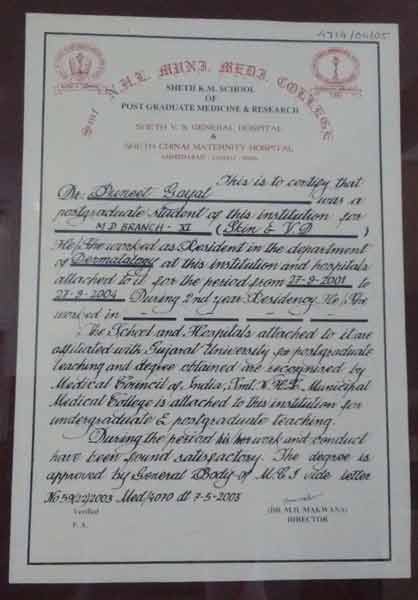 4714/04/05
Smt. N.H.L. MUNI. MEDI. COLLEGE
SHETH K.M. SCHOOL
OF
POST GRADUATE MEDICINE & RESEARCH
SHETH V. S. GENERAL HOSPITAL
&
SHETH CHINAI MATERNITY HOSPITAL
AHMEDABAD
This is to certify that
Dr. Puneet Goyal was a
postgraduate student of this institution for
M D BRANCH - XI (Skin & V D)
He/She worked as Resident in the department
of Dermatology at this institution and hospitals
attached to it for the period from 27-9-2001 to
27-9-2004. During 2nd year Residency He/She
worked in
The School and Hospitals attached to it are
affiliated with Gujarat University for postgraduate
teaching and degree obtained are recognised by
Medical Council of India, Smt. N.H.L. Municipal
Medical College is attached to this institution for
undergraduate & postgraduate teaching.
During the period his/her work and conduct
have been found satisfactory. The degree is
approved by General Body of M.C.I vide letter
No 59(22)2003 Med/4070 dt 7-5-2003
Verified
P. A.
(DR. M.H. MAKWANA)
DIRECTOR